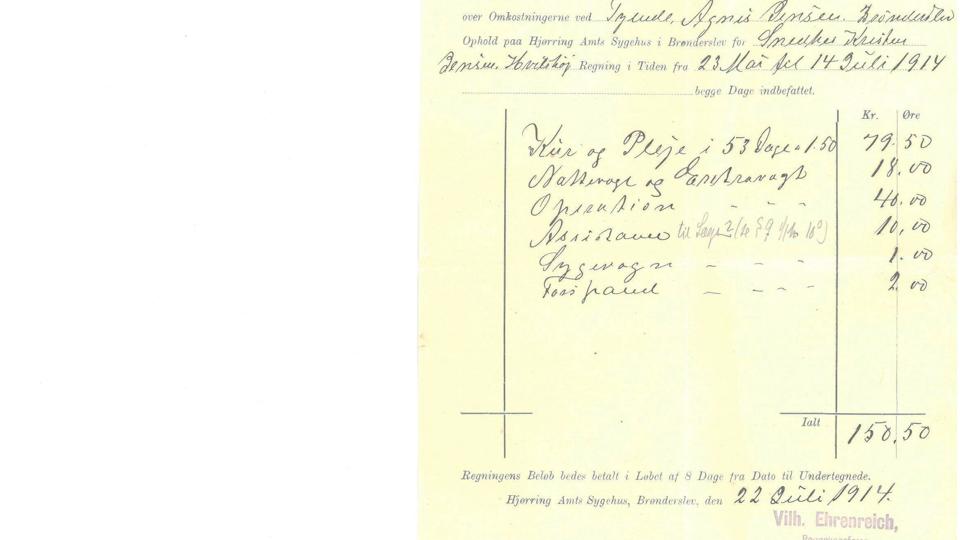 over Omkostningerne ved Tyende, Agnis Jensen. Brönderslev
Ophold paa Hjørring Amts Sygehus i Brønderslev for Snedker Kristen
Jensen. Hvilshøj Regning i Tiden fra 23 Mai til 14 Juli 1914
begge Dage indbefattet.
Kr. Øre
Kur og Pleje i 53 Dage a 1.50 79.50
Nattevagt og Exstravagt 18.00
Operation - - - 40.00
Assistance til Læge 10,00
Sygevogn - - - 1.00
Forspand - - - - 2.00
Ialt 150,50
Regningens Beløb bedes betalt i Løbet af 8 Dage fra Dato til Undertegnede.
Hjørring Amts Sygehus, Brønderslev, den 22 Juli 1914.
Vilh. Ehrenreich,